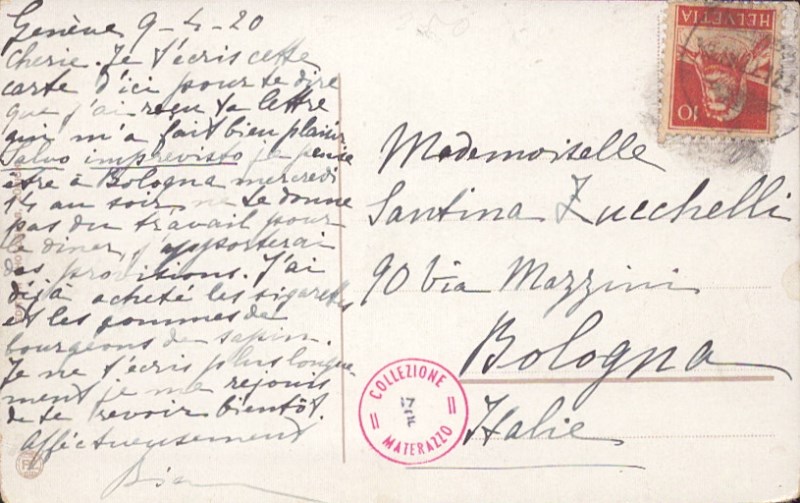 Genève 9-4-20
Cherie. Je t'écris cette
carte d'ici pour te dire
que j'ai reçu ta lettre
qui m'a fait bien plaisir
Salvo imprevisto je pense
être à Bologna mercredi
14 au soir ne te donne
pas du travail pour
le diner, j'apporterai
des provisions. J'ai
déjà acheté les sigarettes
et les gommes de
bourgeons de sapin.
Je ne t'écris plus longue
ment je me rejouis
de te revoir bientôt.
Affectueusement
Mademoiselle
Santina Zucchelli
90 Via Mazzini
Bologna
Italie
HELVETIA
10
COLLEZIONE
MATERAZZO